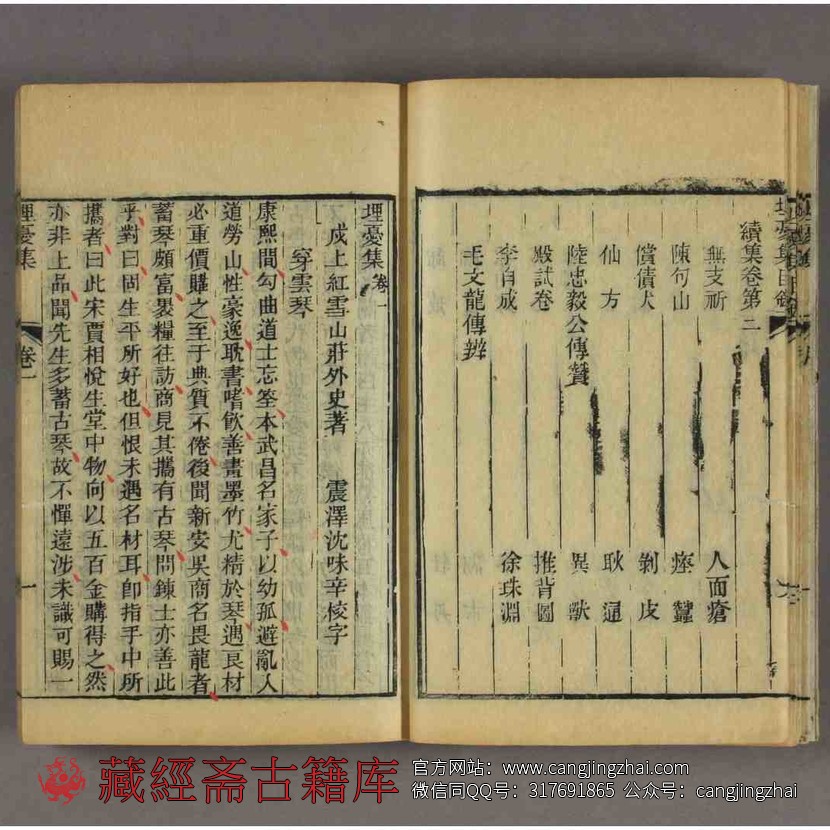 續集卷第二
無支祈 人面瘡
陳句山 瘞𧕴
償債犬 剝皮
仙方 耿通
陸忠毅公傳贊 異獸
殿試卷 推背圖
李自成 徐珠淵
毛文龍傳辨
埋憂集卷一
戍上紅雪山莊外史著 震澤沈味辛校字
穿雲琴
康熙間勾曲道士忘筌本武昌名家子以幼孤避亂入
道勞山性豪逸耽書嗜飲善畫墨竹尤精於琴遇良材
必重價購之至于典質不倦後聞新安吳商名畏龍者
蓄琴頗富褁糧往訪商見其攜有古琴問鍊士亦善此
乎對曰固生平所好也但恨未遇名材耳卽指手中所
攜者曰此宋賈相悅生堂中物向以五百金購得之然
亦非上品聞先生多蓄古琴故不憚遠涉未識可賜一
埋憂集 卷一 一
藏經斋古籍库
官方网站：www.cangjingzhai.com
微信同QQ号：317691865 公众号：cangjingzhai